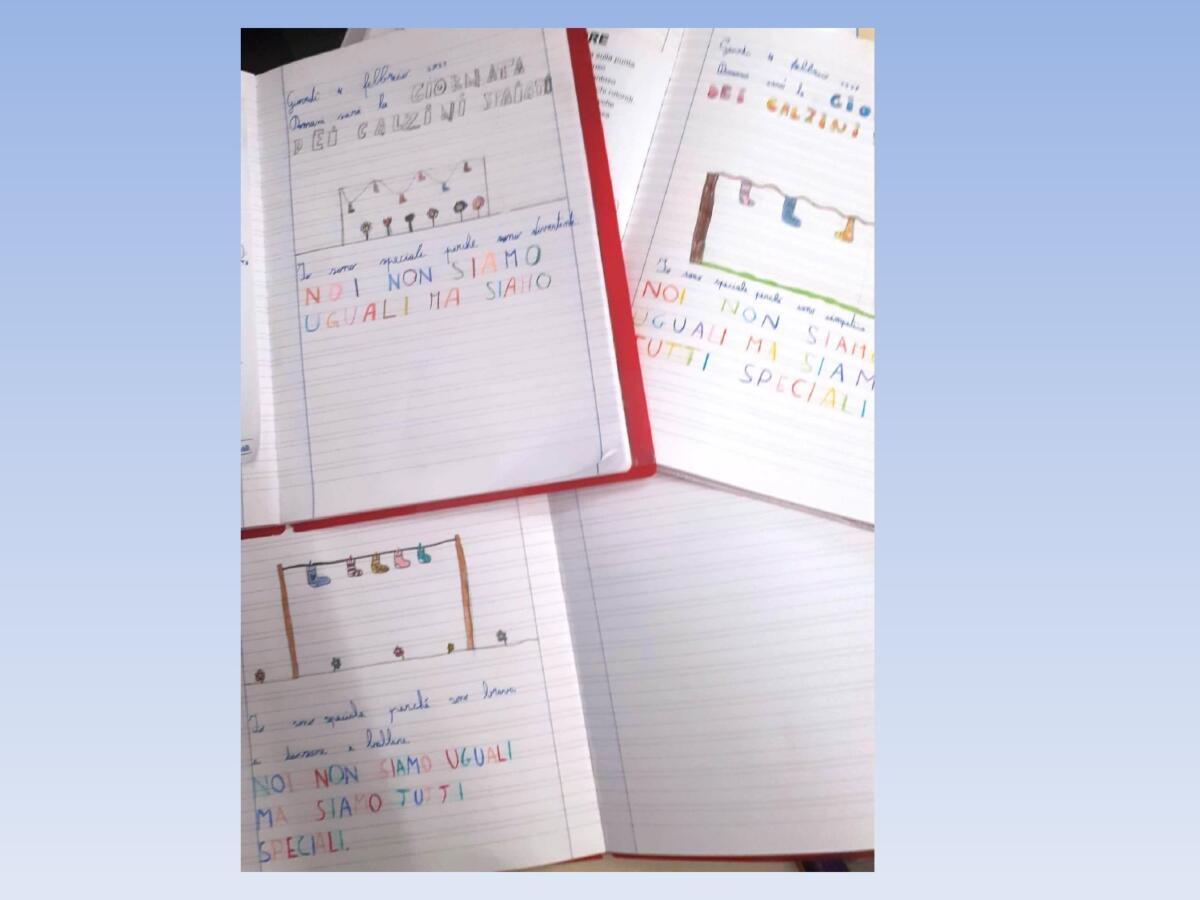 Giovedì 4 febbraio
Domani sarà la GIORNATA
DEI CALZINI SPAIATI
Io sono speciale perché sono divertente.
NOI NON SIAMO
UGUALI MA SIAMO
RE
sulla punta
Giovedì 4 febbraio
Domani sarà la GIO
DEI CALZINI
Io sono speciale perché sono
NOI NON SIAMO
UGUALI MA SIAM
TUTTI SPECIALI
Io sono speciale perché sono brava
a a ballare
NOI NON SIAMO UGUALI
MA SIAMO TUTTI
SPECIALI.